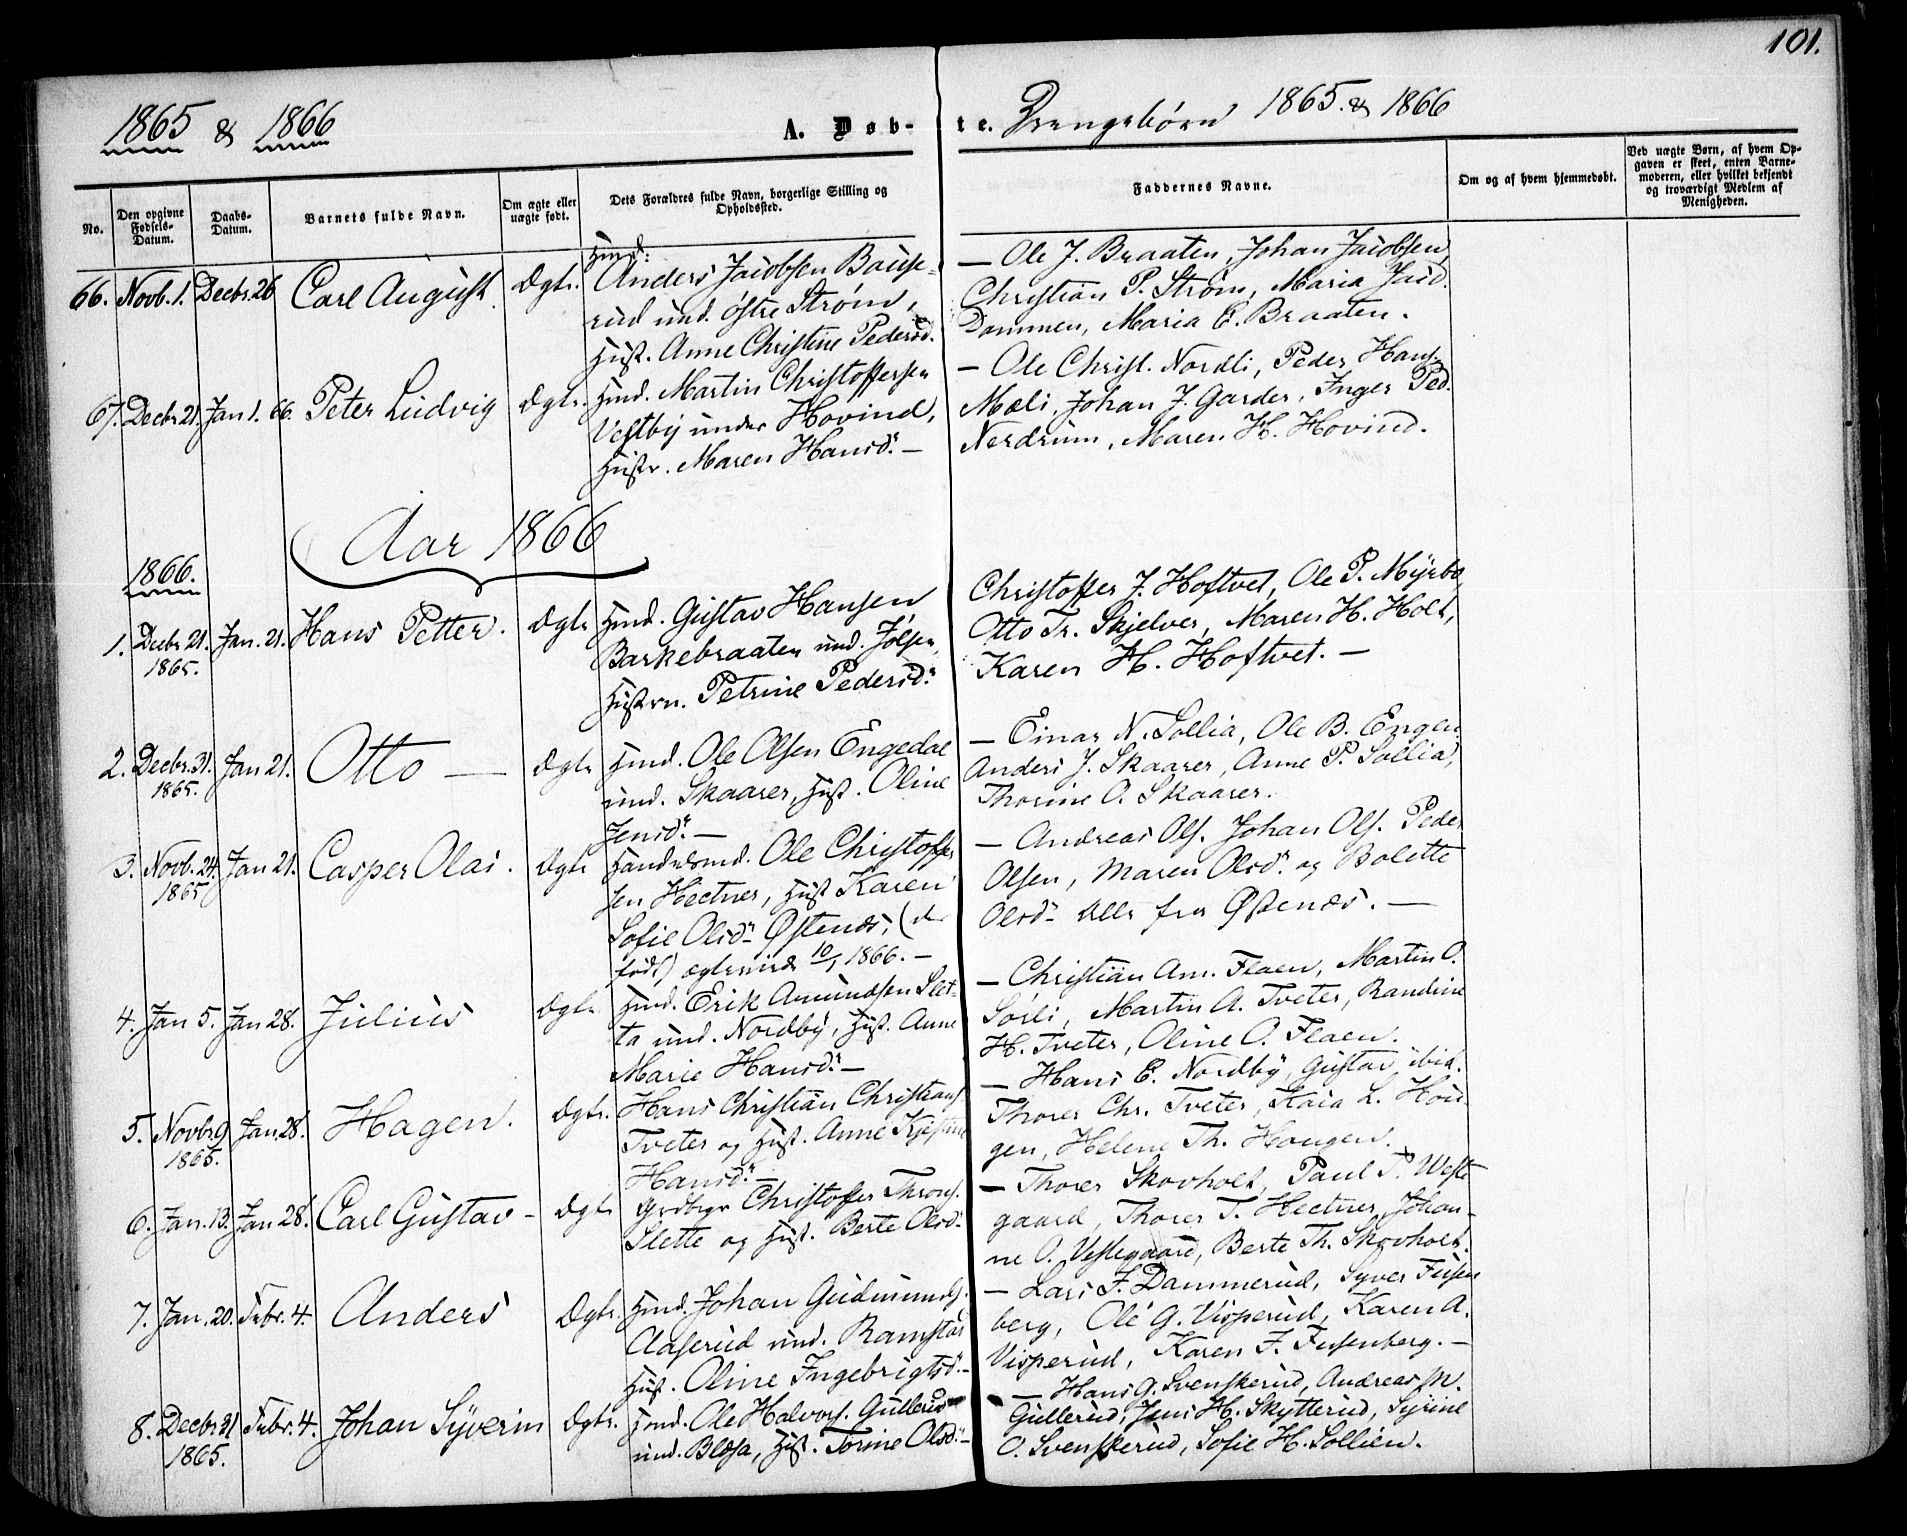 101.
1865 & 1866
A. Døb-te. Drengebørn 1865. & 1866
No.
Den opgivne Fødsels-Datum.
Daabs-Datum.
Barnets fulde Navn.
Om ægte eller uægte født.
Dets Forældres fulde Navn, borgerlige Stilling og Opholdssted.
Faddernes Navne.
Om og af hvem hjemmedøbt.
Ved uægte Børn, af hvem Opgaven er skeet, enten Barnemoderen, eller hvilket bekjendt og troværdigt Medlem af Menigheden.
66. Novb. 1. Decbr. 26 Carl August. Ægte.
Hmd:
Anders Jacobsen Bause-
rud und. østre Strøm,
Hust. Anne Christine Pedersd.
— Ole J. Braaten, Johan Jacobsen,
Christian P. Strøm, Maria Jacd.
Dammen, Maria E. Braaten.
67. Decbr 21. Jan 1. 66. Peter Ludvig Ægte.
Hmd. Martin Christoffersen
Vestby under Hovind,
Hustr. Maren Hansd: —
— Ole Christ. Nordli, Peder Hans.
Mæli, Johan J. Garder, Inger Ped.
Nerdrum, Maren H. Hovind.
Aar 1866
1866.
1. Decbr 21. 1865. Jan. 21. Hans Petter. Ægte
Hmd. Gustav Hansen
Barkebraaten und. Jølsen,
Hustru. Petrine Pedersd:
Christoffer J. Hoftvet, Ole P. Myrbo,
Otto Tr. Skjelver, Maren H. Holt,
Karen H. Hoftvet. —
2. Decbr. 31. 1865. Jan 21. Otto — Ægte
Hmd. Ole Olsen Engedal
und. Skaarer, Hust. Oline
Jensd: —
— Einar N. Sollia, Ole B. Engen
Anders J. Skaarer, Anne P. Sollia,
Thorine O. Skaarer.
3. Novb. 24. 1865 Jan 21. Casper Olai. Ægte
Handelsmd. Ole Christoffer
sen Hectner, Hust Karen
Sofie Olsd: Østenæs, (de
født) ægteviede 10/1 1866. —
— Andreas Ols. Johan Ols. Peder
Olsen, Maren Olsd: og Bolette
Olsd: alle fra Østenæs. —
4. Jan 5. Jan 28. Julius Ægte.
Hmd. Erik Amundsen Slet-
ta und. Nordby, Hust. Anne
Marie Hansd: —
— Christian Am. Flaen, Martin O.
Sørli, Martin A. Tveter, Randine
H. Tveter, Oline O. Flaen.
5. Novbr 9 1865. Jan. 28. Hagen. Ægte.
Hans Christian Christians.
Tveter og Hust. Anne Kjestine
Hansd: —
— Hans E. Nordby, Gustav ibid.
Thorer Chr. Tveter, Kaia L. Hou-
gen, Helene Th. Hougen.
6. Jan. 13. Jan 28. Carl Gustav — Ægte
Grdbrgr Christoffer Throns.
Slette og Hust. Berte Olsd:
— Thorer Skovholt, Paul P. Veste-
gaard, Thorer T. Hectner, Johan-
ne O. Vestegaard, Berte Th. Skovholt.
7. Jan. 20. Febr. 4. Anders Ægte.
Hmd. Johan Gudmunds.
Aaserud und. Ramstad
Hust. Oline Ingebrigtsd: —
— Lars F. Dammerud, Syver Fusen
berg, Ole G. Visperud, Karen A.
Visperud, Karen F. Fusenberg. —
8. Decbr 31 1865. Febr. 4. Johan Syverin Ægte.
Hmd. Ole Halvors. Gullerud
und. Blæsa, Hust. Torine Olsd: —
— Hans G. Svenskerud, Andreas M.
Gullerud, Jens H. Skytterud, Syrine
O. Svenskerud, Sofie H. Sollien.